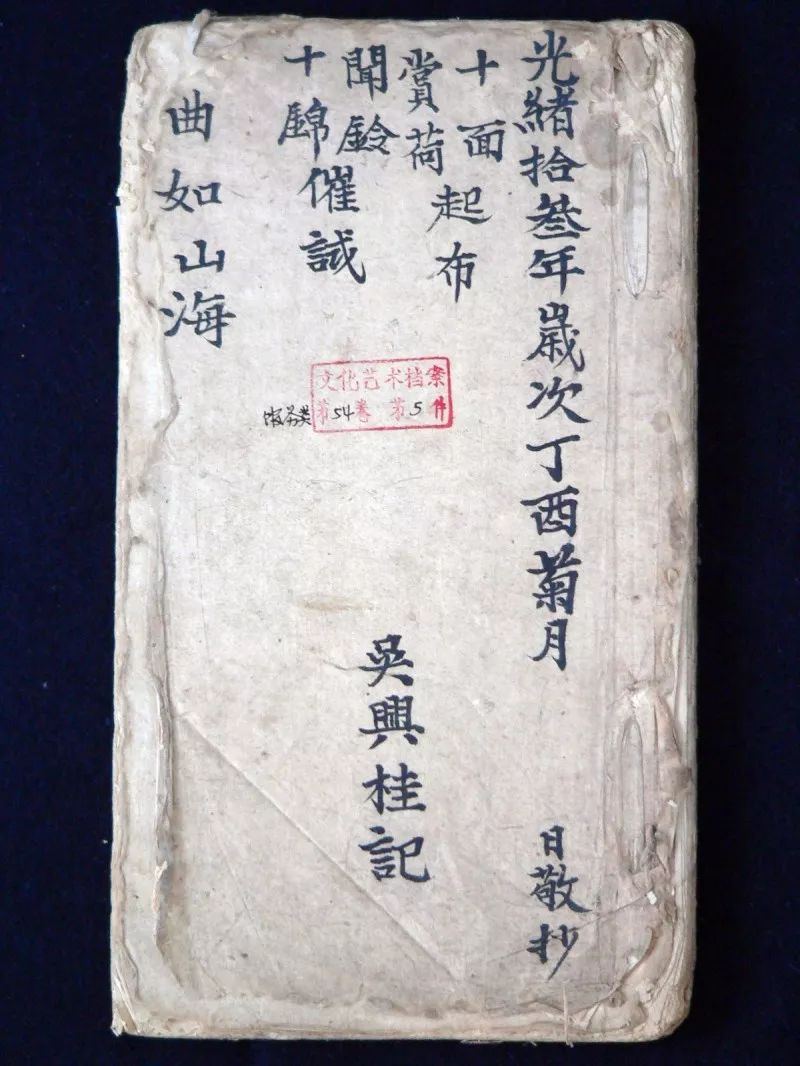 光緒拾叁年歲次丁酉菊月 日敬抄
十面
起布
賞荷
聞鈴
催試
十錦
曲如山海
文化艺术档案
第54卷 第5件
吳興桂記